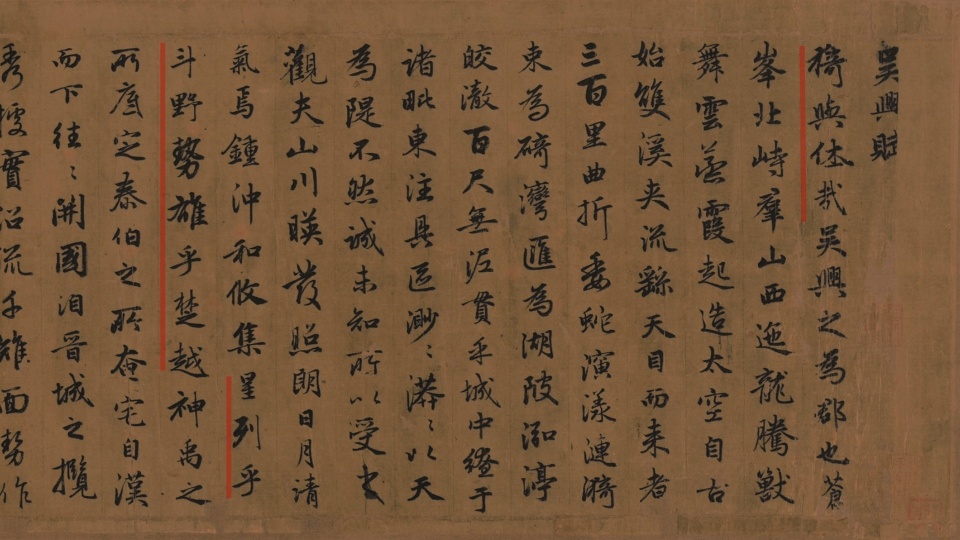 吴興賦
猗與休哉吴興之為郡也蒼
峯北峙羣山西迤龍騰獸
舞雲蒸霞起造太空自古
始雙溪夾流繇天目而来者
三百里曲折委蛇演漾漣漪
束為碕灣匯為湖陂泓渟
皎澈百尺無泥貫乎城中繚于
諸毗東注具區渺〻漭〻以天
為隄不然誠未知所以受之
觀夫山川暎發照朗日月清
氣焉鍾沖和攸集星列乎
斗野勢雄乎楚越神禹之
所底定泰伯之所奄宅自漢
而下往〻開國洎晉城之攬
秀據實沿流千雉面勢作